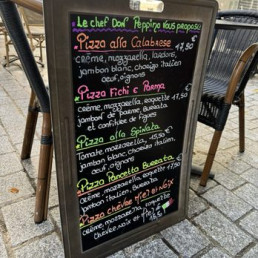 Le chef Don Peppino vous propose
Pizza alla Calabrese
17,50
crème, mozzarella, lardons,
jambon blanc, chorizo italien
oeuf, oignons
Pizza Fichi e Parma
crème, mozzarella, roquette 17,50
jambon de parme, Burrata
et confiture de Figues
Pizza alla
Tomate, mozzarella,
jambon blanc, chorizo italien
oeuf, oignons
Pizza Porcella Burrata
crème, mozzarella, roquette
jambon italien, Burrata
Pizza chèvre miel et Noix
crème, mozzarella,
chèvre Noix et miel